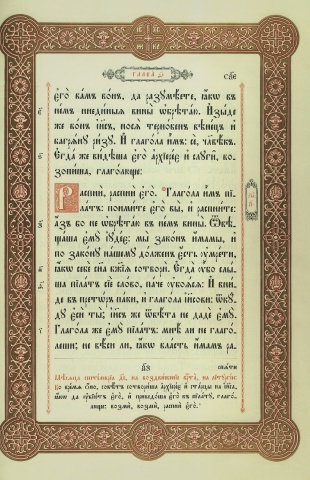 ГЛАВА
его̀ ва́мъ во́нъ, да разумѣ́ете, ꙗ҆́кѡ въ
не́мъ ни є҆ди́ныѧ вины̀ ѡ҆брѣта́ю. И҆зы́де
же во́нъ і҆и҃съ, носѧ̀ терно́венъ вѣне́цъ и҆
багрѧ́ну ри́зу. И҆ глаго́ла и҆̀мъ: сѐ, чл҃вѣ́къ.
Є҆гда́ же ви́дѣша є҆го̀ а҆рхїере́є и҆ слꙋги̑,
возопи́ша, глаго́люще:
Распнѝ, распнѝ є҆го̀. Глаго́ла и҆̀мъ пїла́тъ:
пои́мите є҆го̀ вы̀, и҆ распни́те:
а҆́зъ бо не ѡ҆брѣта́ю въ не́мъ вины̀. Ѿвѣ-
ща́ша є҆мꙋ̀ і҆ꙋде́є: мы̀ зако́нъ и҆́мамы, и҆
по зако́нꙋ на́шемꙋ до́лженъ є҆́сть ᲂу҆мре́ти,
ꙗ҆́кѡ себѐ сн҃а бж҃їѧ сотворѝ. Є҆гда́ ᲂу҆̀бо слы́-
ша пїла́тъ сїѐ сло́во, па́че ᲂу҆боѧ́сѧ. И҆ вни́-
де въ прето́ръ па́ки, и҆ глаго́ла і҆и҃сови: ѿкꙋ́-
дꙋ є҆сѝ ты̀; і҆и҃съ же ѿвѣ́та не дадѐ є҆мꙋ̀.
Глаго́ла же є҆мꙋ̀ пїла́тъ: мнѣ́ ли не глаго́-
леши; не вѣ́си ли, ꙗ҆́кѡ вла́сть и҆́мамъ ра-
спѧ́ти
во вре́мѧ ѻ҆́но, совѣ́тъ сотвори́ша а҆рхїере́є и҆ ста́рцы на і҆и҃са,
ꙗ҆́кѡ да ᲂу҆бїю́тъ є҆го̀, и҆ приведо́ша є҆го̀ къ пїла́тꙋ, глаго́-
люще: возмѝ, возмѝ, распнѝ є҆го̀.